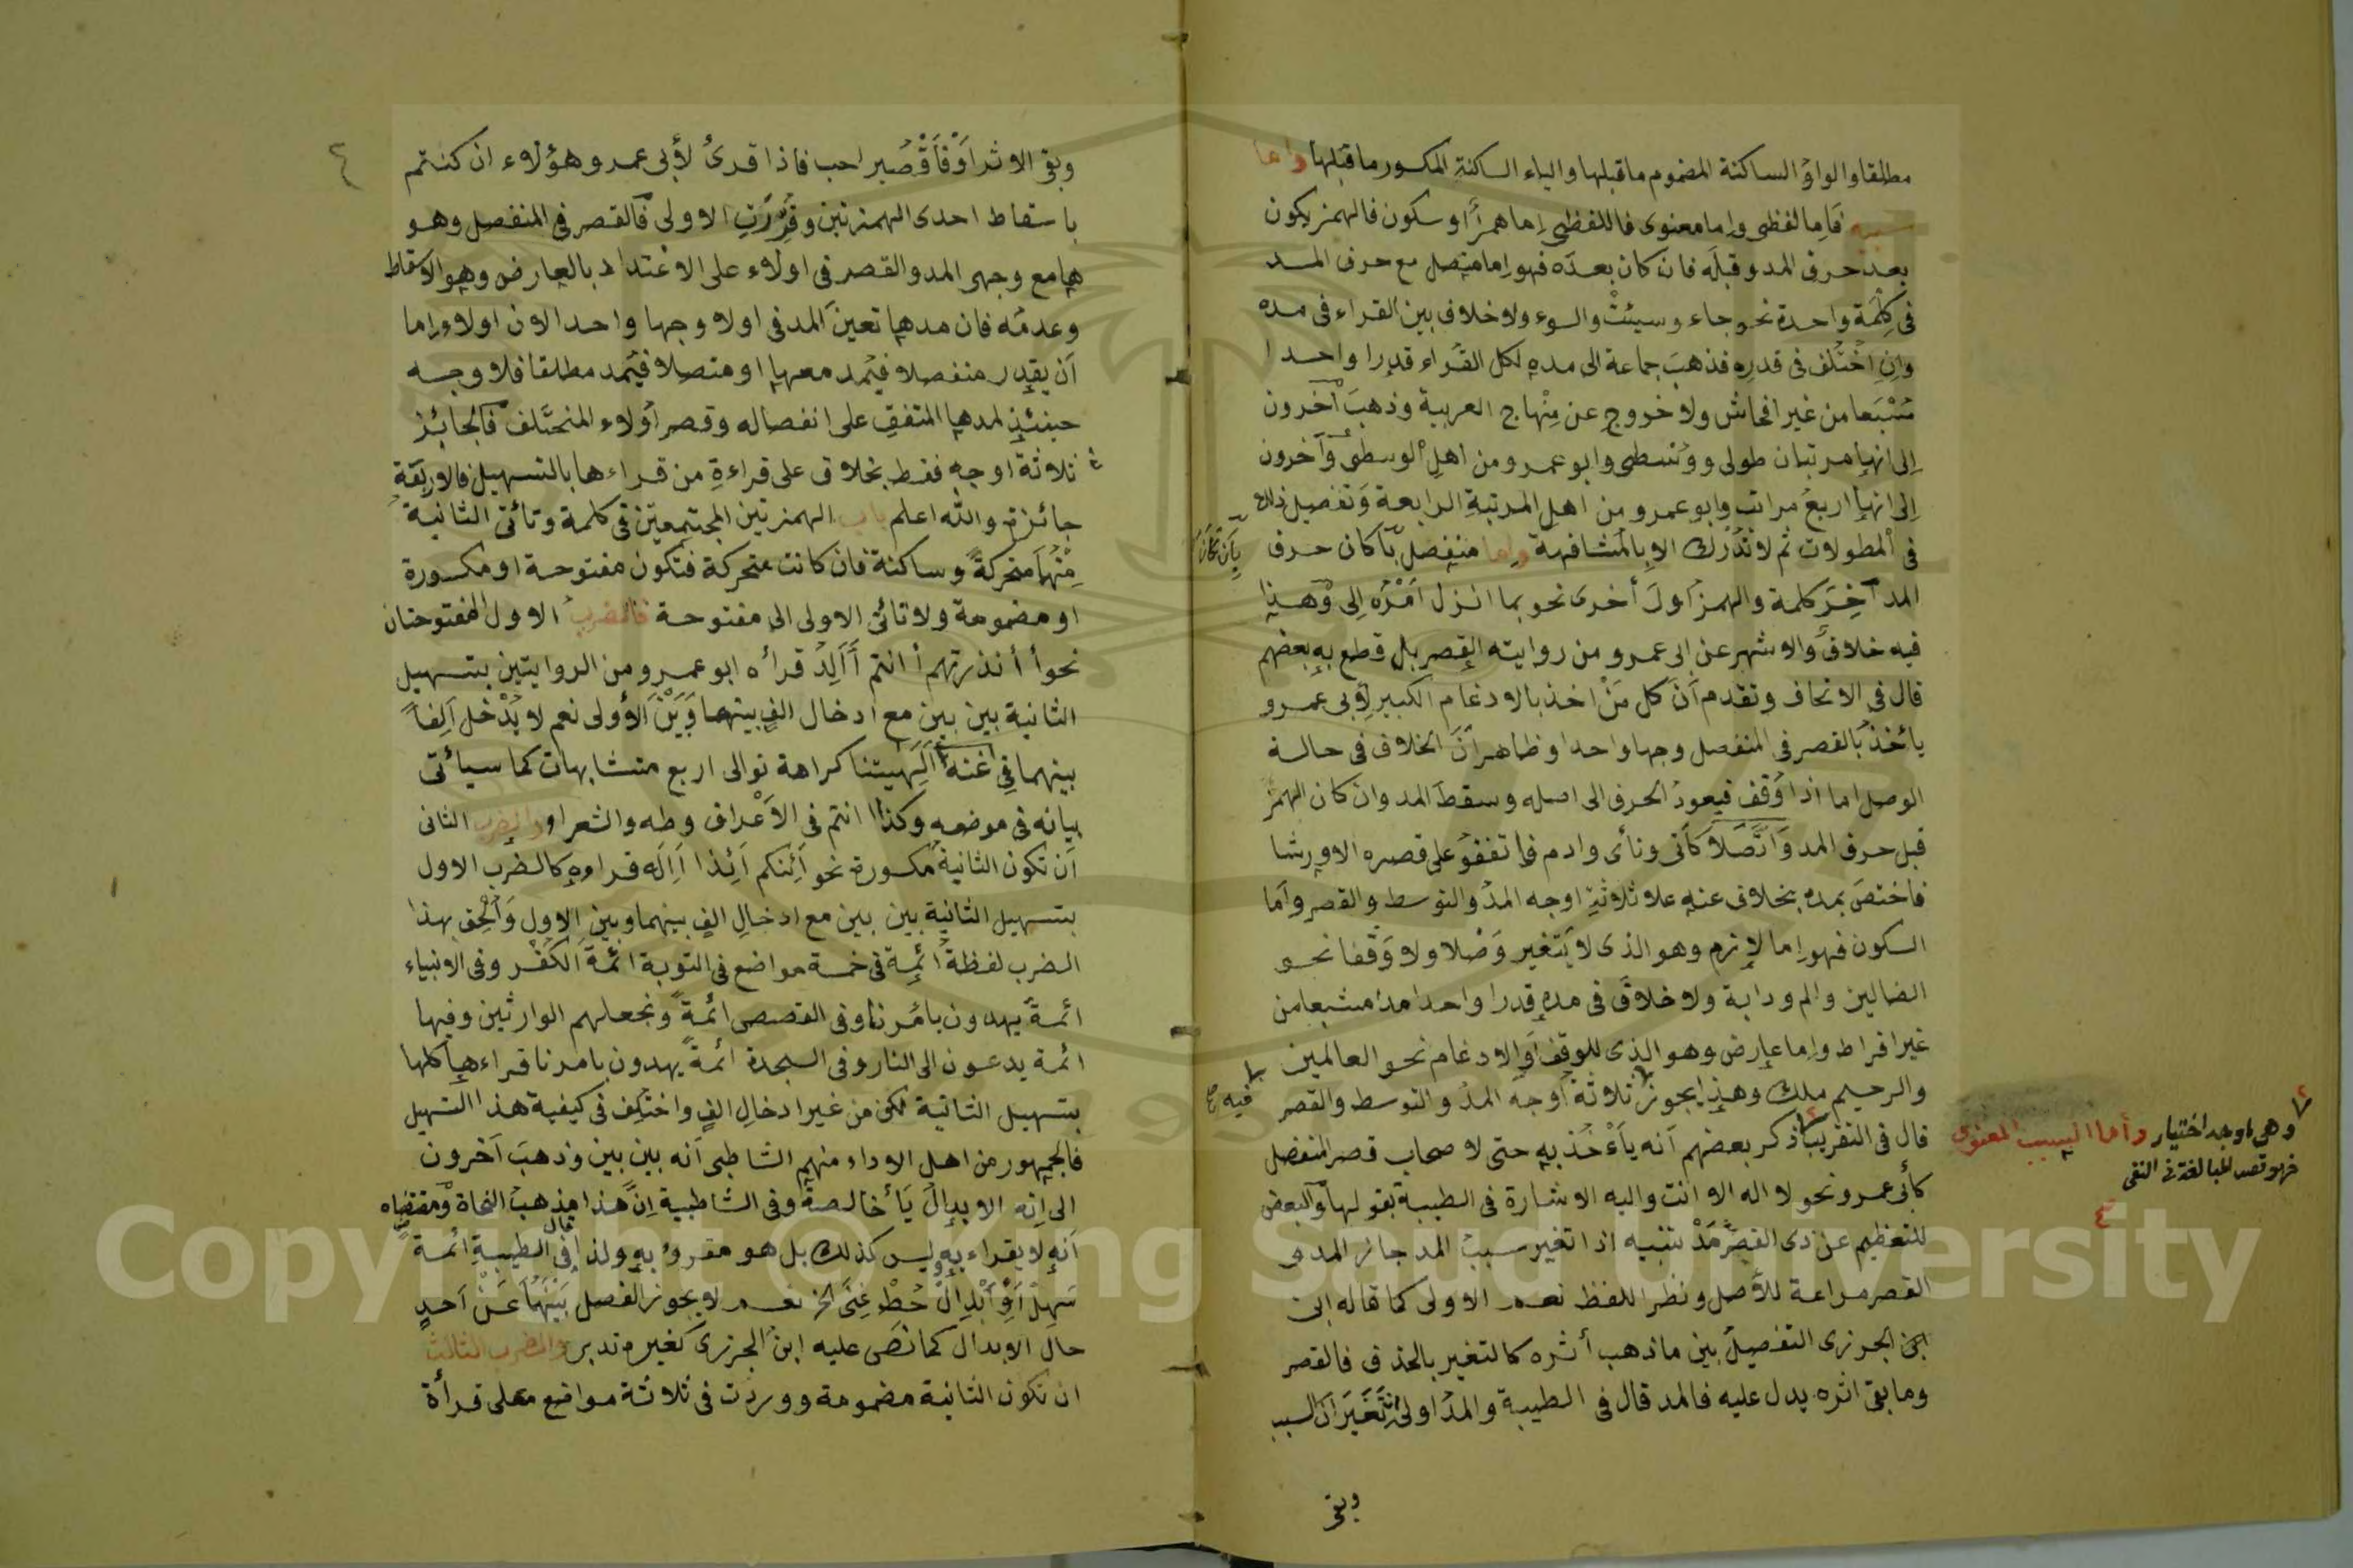 مطلقا والواو الساكنة المضموم ما قبلها والياء الساكنة المكسور ما قبلها واما
سببه فاما لفظى واما معنوى فاللفظى اما همز او سكون فالهمز يكون
بعد حرف المد وقبله فان كان بعده فهو اما متصل مع حرف المد
فى كلمة واحدة نحو جاء وسيئت والسوء ولا خلاف بين القراء فى مده
وان اختلف فى قدره فذهب جماعة الى مده لكل القراء قدرا واحدا
مشبعا من غير افحاش ولا خروج عن منهاج العربية وذهب آخرون
الى انها مرتبتان طولى ووسطى وابو عمرو من اهل الوسطى وآخرون
الى انها اربع مراتب وابو عمرو من اهل المرتبة الرابعة وتفصيل ذلك
فى المطولات ثم لا تدرك الا بالمشافهة واما منفصل بأن كان حرف
بأن كان
المد آخر كلمة والهمز اول أخرى نحو بما انزل امره الى وهذا
فيه خلاف والاشهر عن ابى عمرو من روايتيه القصر بل قطع به بعضهم
قال فى الاتحاف وتقدم أن كل من اخذ بالادغام الكبير لأبى عمرو
يأخذ بالقصر فى المنفصل وجها واحدا وظاهر أن الخلاف فى حالة
الوصل اما اذا وقف فيعود الحرف الى اصله وسقط المد وان كان الهمز
قبل حرف المد واتصلا كآتى ونأى وادم فاتفقو على قصره الا ورشا
فاختص بمده بخلاف عنه علا ثلاثة اوجه المد والتوسط والقصر واما
السكون فهو اما لازم وهو الذى لا يتغير وصلا ولا وقفا نحو
الضالين والم ودابة ولا خلاف فى مده قدرا واحدا مدا مشبعا من
غير افراط واما عارض وهو الذى للوقف او الادغام نحو العالمين
والرحيم ملك وهذا يجوز ثلاثة أوجه المد والتوسط والقصر
فيه صح
وهى اوجه اختيار وأما السبب المعنوى
فهو قصد المبالغة فى النفى
قال فى التقريب ذكر بعضهم أنه يأخذ به حتى لاصحاب قصر المنفصل
كأبى عمرو نحو لا اله الا انت واليه الاشارة فى الطيبة بقولها والبعض
للتعظيم عن ذى القصر مد تنبيه اذا تغير سبب المد جاز المد و
القصر مراعة للأصل ونظرا للفظ نعم الاولى كما قاله ابن
الجزرى التفصيل بين ما ذهب أثره كالتغير بالحذف فالقصر
وما بقى اثره يدل عليه فالمد قال فى الطيبة والمد اولى ان تغير السبب
وبقى
وبقى الاثر او فاقصر احب فاذا قرئ لأبى عمرو هؤلاء ان كنتم
باسقاط احدى الهمزتين وقدرت الاولى فالقصر فى المنفصل وهو
ها مع وجهى المد والقصر فى اولاء على الاعتداد بالعارض وهو الاسقاط
وعدمه فان مدها تعين المد فى اولا وجها واحدا لان اولاء اما
أن يقدر منفصلا فيمد معها او متصلا فيمد مطلقا فلا وجه
حينئذ لمدها المتفق على انفصاله وقصر اولاء المختلف فالجائز
ثلاثة اوجه فقط بخلاف على قراءة من قراءها بالتسهيل فالاربعة
جائزة والله اعلم باب الهمزتين المجتمعتين فى كلمة وتأتى الثانية
منهما متحركة وساكنة فان كانت متحركة فتكون مفتوحة او مكسورة
او مضمومة ولا تأتى الاولى الا مفتوحة فالضرب الاول المفتوحتان
نحو أأنذرتهم أانتم أألد قرأه ابو عمرو من الروايتين بتسهيل
الثانية بين بين مع ادخال الف بينهما وبين الأولى نعم لا يدخل ألفا
بينهما فى أآلهتنا كراهة توالى اربع متشابهات كما سيأتى
بيانه فى موضعه وكذا اانتم فى الأعراف وطه والشعرا والضرب الثانى
أن تكون الثانية مكسورة نحو أئنكم أئذا أإله قراءه كالضرب الاول
بتسهيل الثانية بين بين مع ادخال الف بينهما وبين الاول وألحق بهذا
الضرب لفظة أئمة فى خمسة مواضع فى التوبة ائمة الكفر وفى الانبياء
ائمة يهدون بأمرنا وفى القصص ائمة ونجعلهم الوارثين وفيها
ائمة يدعون الى النار وفى السجدة ائمة يهدون بامرنا قراءها كلها
بتسهيل الثانية لكن من غير ادخال الف واختلف فى كيفية هذا التسهيل
فالجمهور من اهل الاداء منهم الشاطبى أنه بين بين وذهب آخرون
الى انه الابدال يأ خالصة وفى الشاطبية ان هذا مذهب النحاة ومقتضاه
أنه لا يقراء به وليس كذلك بل هو مقروء به ولذا قال فى الطيبة ائمة
سهل أو أبدل حط غنى الخ نعم لا يجوز الفصل بينهما عن أحد
حال الابدال كما نص عليه ابن الجزرى كغيره تدبر والضرب الثالث
ان تكون الثانية مضمومة ووردت فى ثلاثة مواضع على قرأة